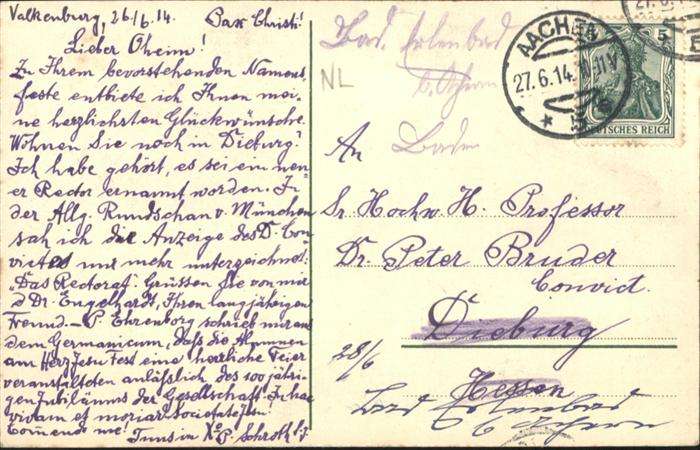 Valkenburg, 26/6.14. Pax Christi!
Lieber Oheim!
Zu Ihrem bevorstehenden Namens,
feste entbiete ich Ihnen mei-
ne herzlichsten Glückwünsche.
Wohnen Sie noch in Dieburg?
Ich habe gehört, es sei ein neu-
er Rector ernannt worden. In
der Allg. Rundschau v. München
sah ich die Anzeige des D. Con-
victes und mehr unterzeichnet:
"Das Rectorat. Grüssen Sie von mir
d Dr. Engelhardt, Ihren langjährigen
Freund.- P. Ehrenborg schrieb mir aus
dem Germanicum, dass die Alumnen
am Herz Jesu Fest eine herrliche Feier
veranstalteten anlässlich des 100 jähri-
gen Jubiläums der Gesellschaft. In hac
vivam et moriar Societate Jesu!
Comendo me! Tuus in P. Schroth S.J.
Bad Erlenbad
b. Achern
Baden
NL
AACHEN
27.6.14.
5
DEUTSCHES REICH
An
Sr. Hochw. H. Professor
Dr. Peter Bruder
Convict.
Dieburg
28/6
Hessen
Bad Erlenbad
b Achern